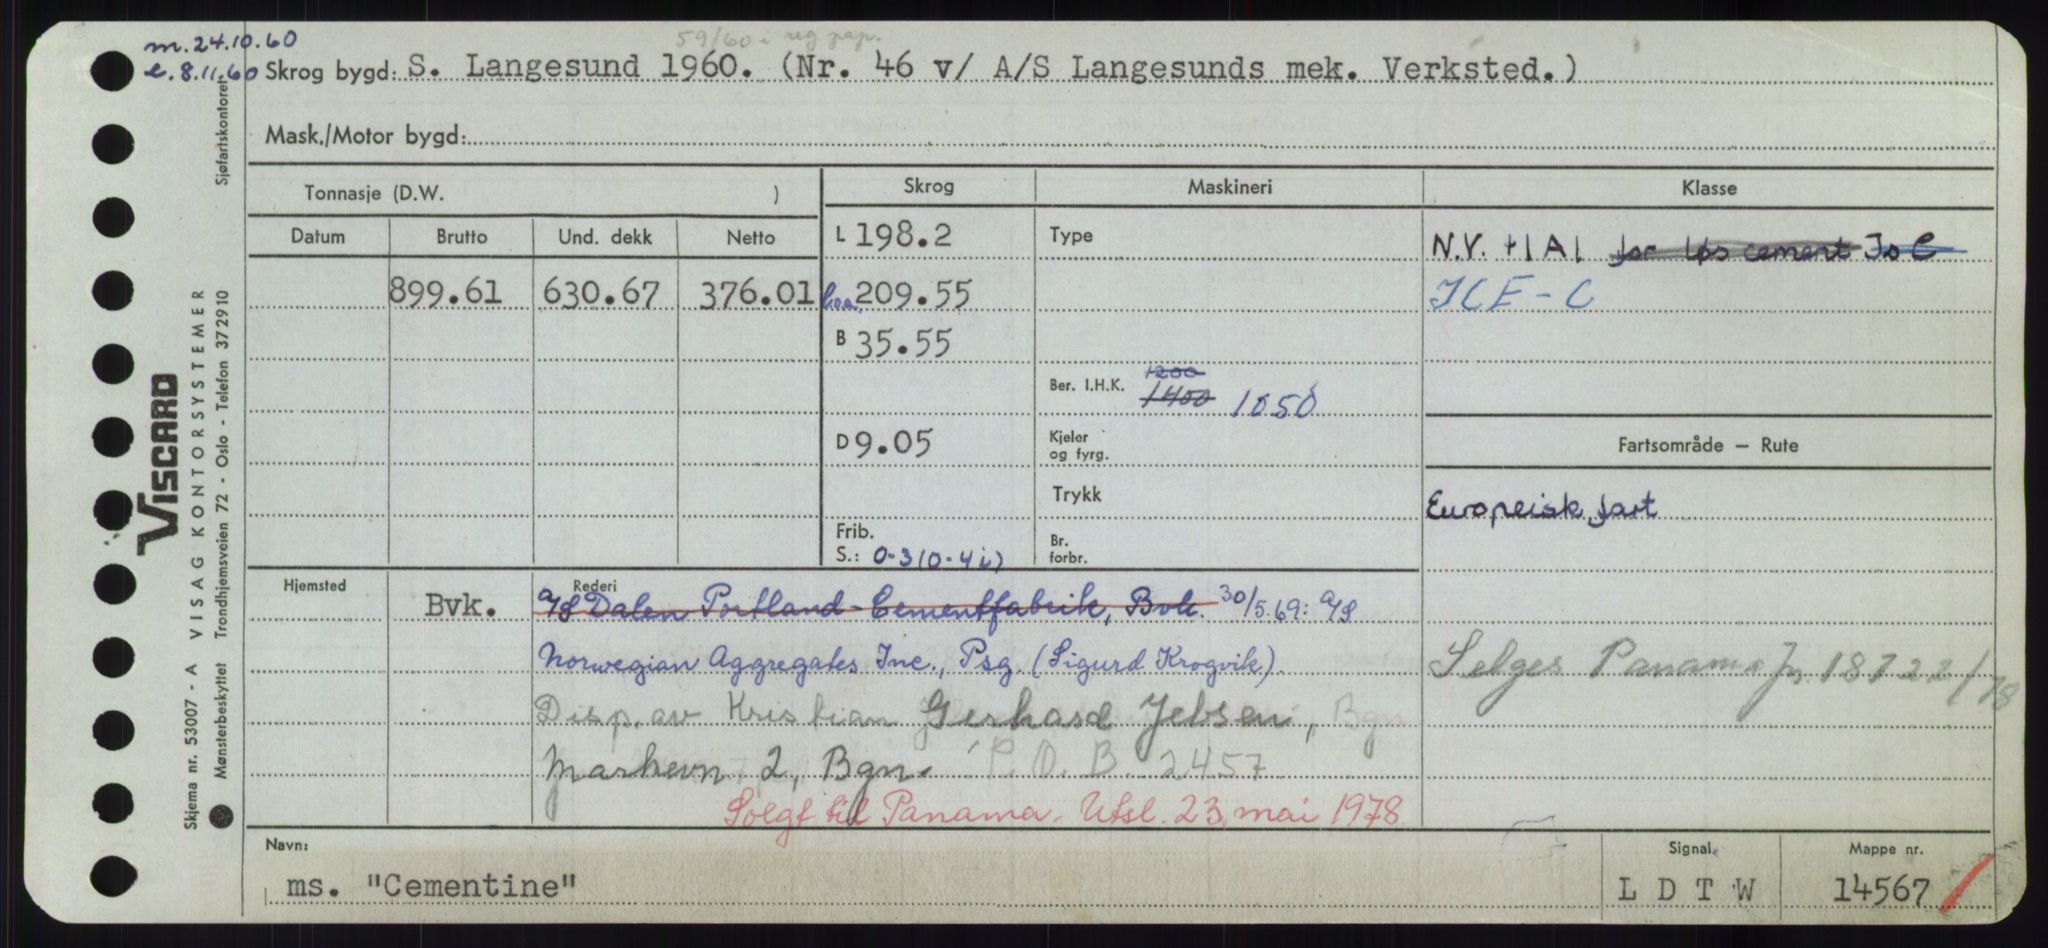 m. 24.10.60
e. 8.11.60
59/60 i reg pap.
Skrog bygd: S. Langesund 1960. (Nr. 46 v/ A/S Langesunds mek. Verksted.)
Mask./Motor bygd:
Tonnasje (D.W. )
Skrog
Maskineri
Klasse
Datum
Brutto
Und. dekk
Netto
899.61
630.67
376.01
L 198.2
209.55
B 35.55
D 9.05
Frib.
S.: 0-3 (0-4 i)
Type
Ber. I.H.K. 1200
1400 1050
Kjeler
og fyrg.
Trykk
Br.
forbr.
N.V. +1A1 for løs cement Is C
ICE-C
Fartsområde — Rute
Europeisk fart
Selges Panama 22/
Hjemsted
Bvk.
Rederi
A/S Dalen Portland-Cementfabrik, Bvk. 30/5.69: A/S
Norwegian Aggregates Inc., Psg. (Sigurd Krogvik)
Disp. av Kristian Gerhard Jebsen, Bgn
2, Bgn. P.O.B. 2457
Solgt til Panama. Utsl. 23. mai 1978
Navn:
ms. "Cementine"
Signal
L D T W
Mappe nr.
14567
Viscard
VISAG KONTORSYSTEMER
Skjema nr. 53007 - A
Mønsterbeskyttet Trondhjemsveien 72 - Oslo - Telefon 372910
Sjøfartskontoret